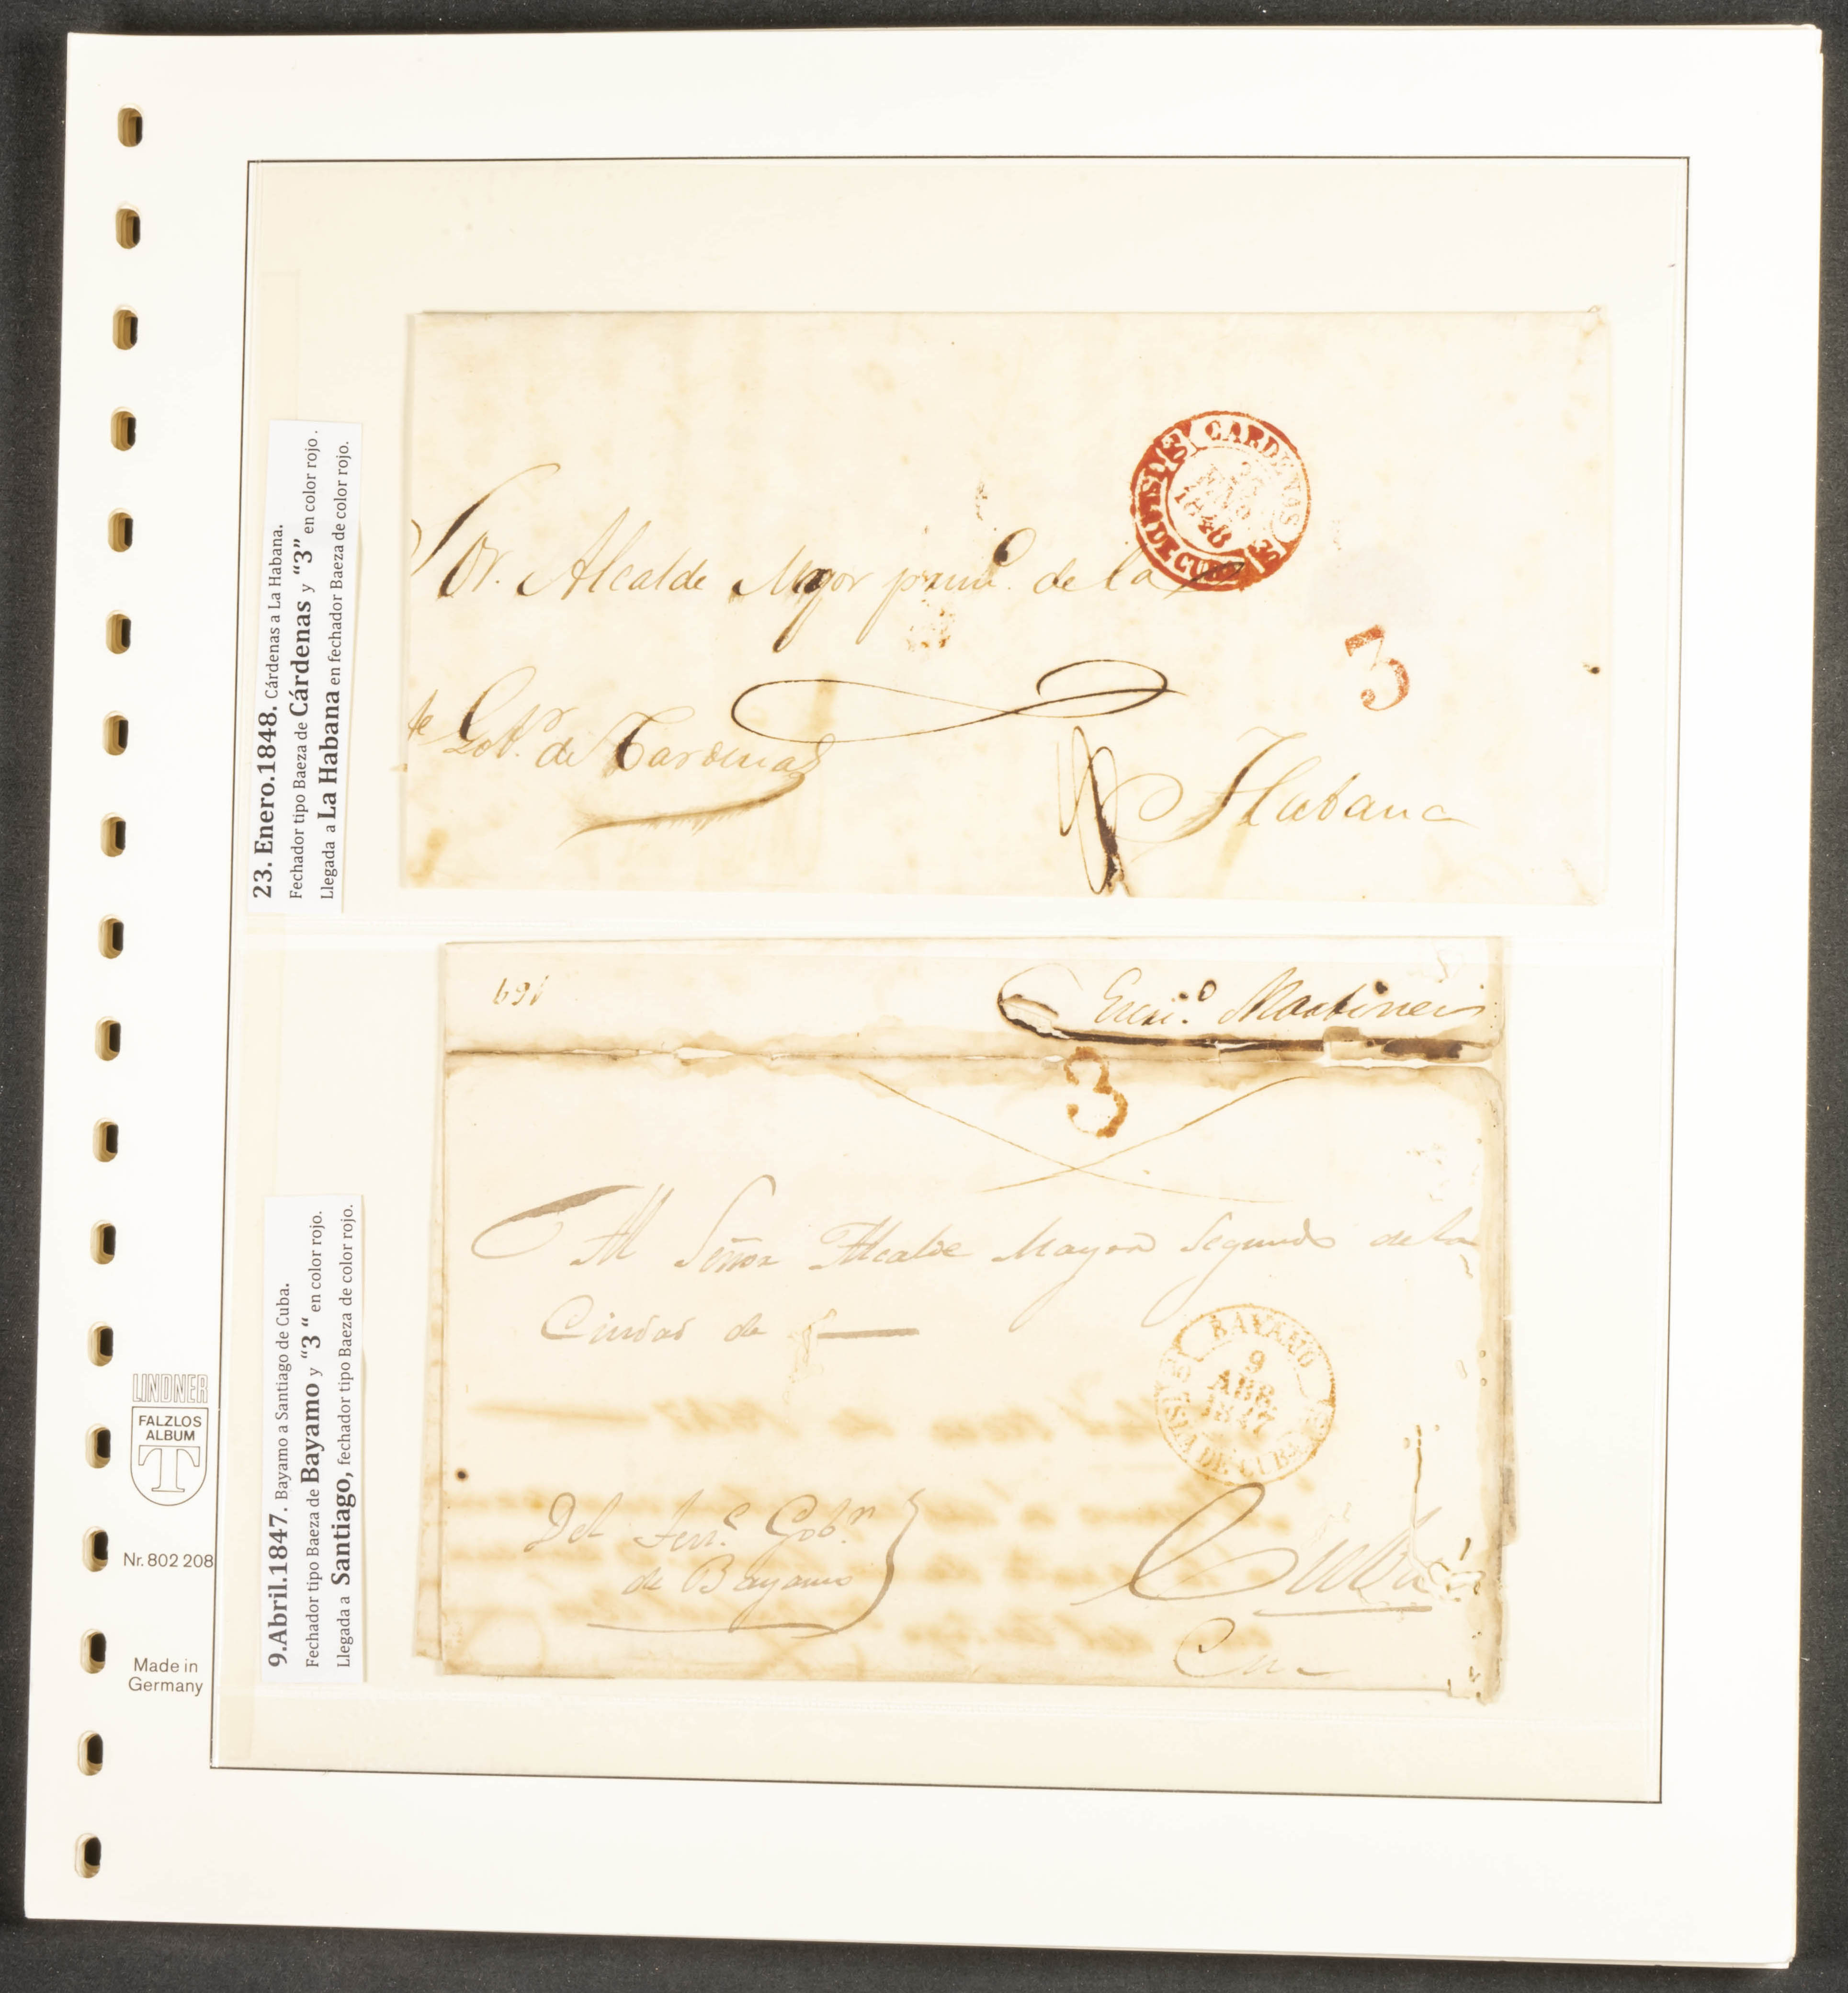 23. Enero.1848. Cárdenas a La Habana.
Fechador tipo Baeza de Cárdenas y “3” en color rojo .
Llegada a La Habana en fechador Baeza de color rojo.
CARDENAS
1848
ISLA DE CUBA
Sor. Alcalde Mayor prim.º de la
3
Gob.r de Cardenas
Habana
9.Abril.1847. Bayamo a Santiago de Cuba.
Fechador tipo Baeza de Bayamo y “3 “ en color rojo.
Llegada a Santiago, fechador tipo Baeza de color rojo.
169
Martinez
3
Al Señor Alcalde Mayor Segundo de la
Ciudad de
BAYAMO
9
ABR.
1847
ISLA DE CUBA
Del Ten.e Gob.r
de Bayamo
Cuba
LINDNER
FALZLOS
ALBUM
T
Nr. 802 208
Made in
Germany